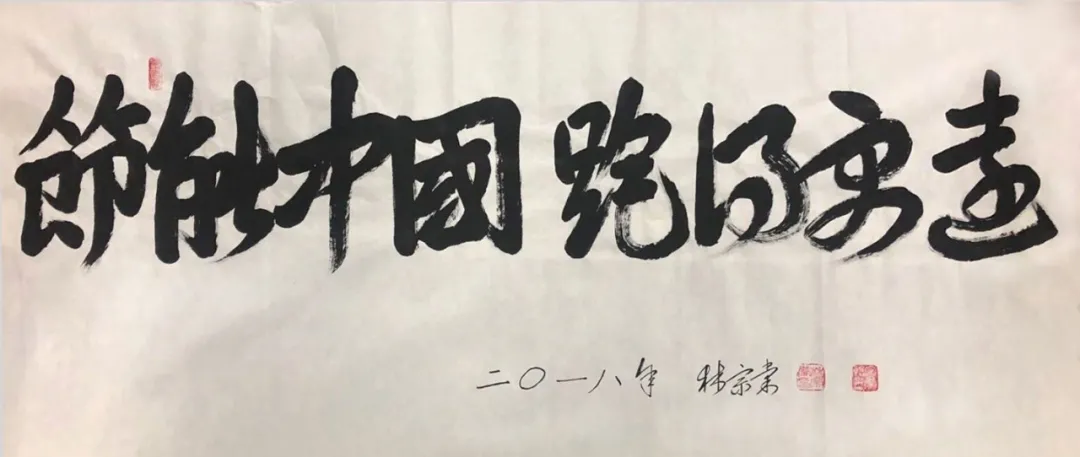 節能中國 跑得更遠
二〇一八年 林宗棠